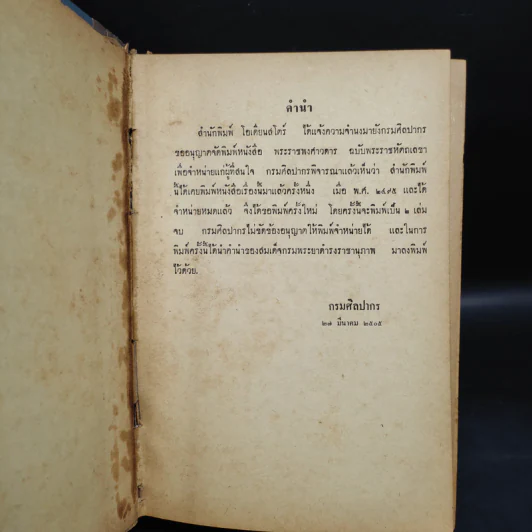 คำนำ
สำนักพิมพ์ โอเดียนสโตร์ ได้แจ้งความจำนงมายังกรมศิลปากร
ขออนุญาตจัดพิมพ์หนังสือ พระราชพงศาวดาร ฉบับพระราชหัตถเลขา
เพื่อจำหน่ายแก่ผู้ที่สนใจ กรมศิลปากรพิจารณาแล้วเห็นว่า สำนักพิมพ์
นี้ได้เคยพิมพ์หนังสือเรื่องนี้มาแล้วครั้งหนึ่ง เมื่อ พ.ศ. ๒๔๙๕ และได้
จำหน่ายหมดแล้ว จึงได้ขอพิมพ์ครั้งใหม่ โดยครั้งนี้จะพิมพ์เป็น ๒ เล่ม
จบ กรมศิลปากรไม่ขัดข้องอนุญาตให้พิมพ์จำหน่ายได้ และในการ
พิมพ์ครั้งนี้ได้นำคำนำของสมเด็จกรมพระยาดำรงราชานุภาพ มาลงพิมพ์
ไว้ด้วย.
กรมศิลปากร
๒๗ มีนาคม ๒๕๐๕